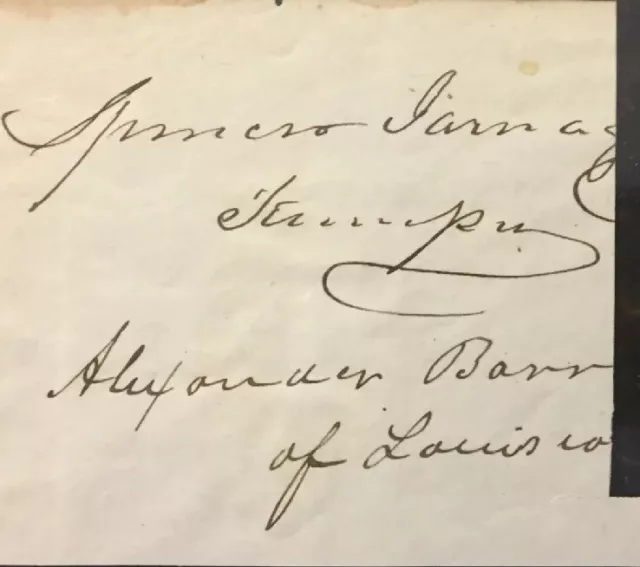 Spencer Jarnag
Tennessee
Alexander Barr
of Louisia